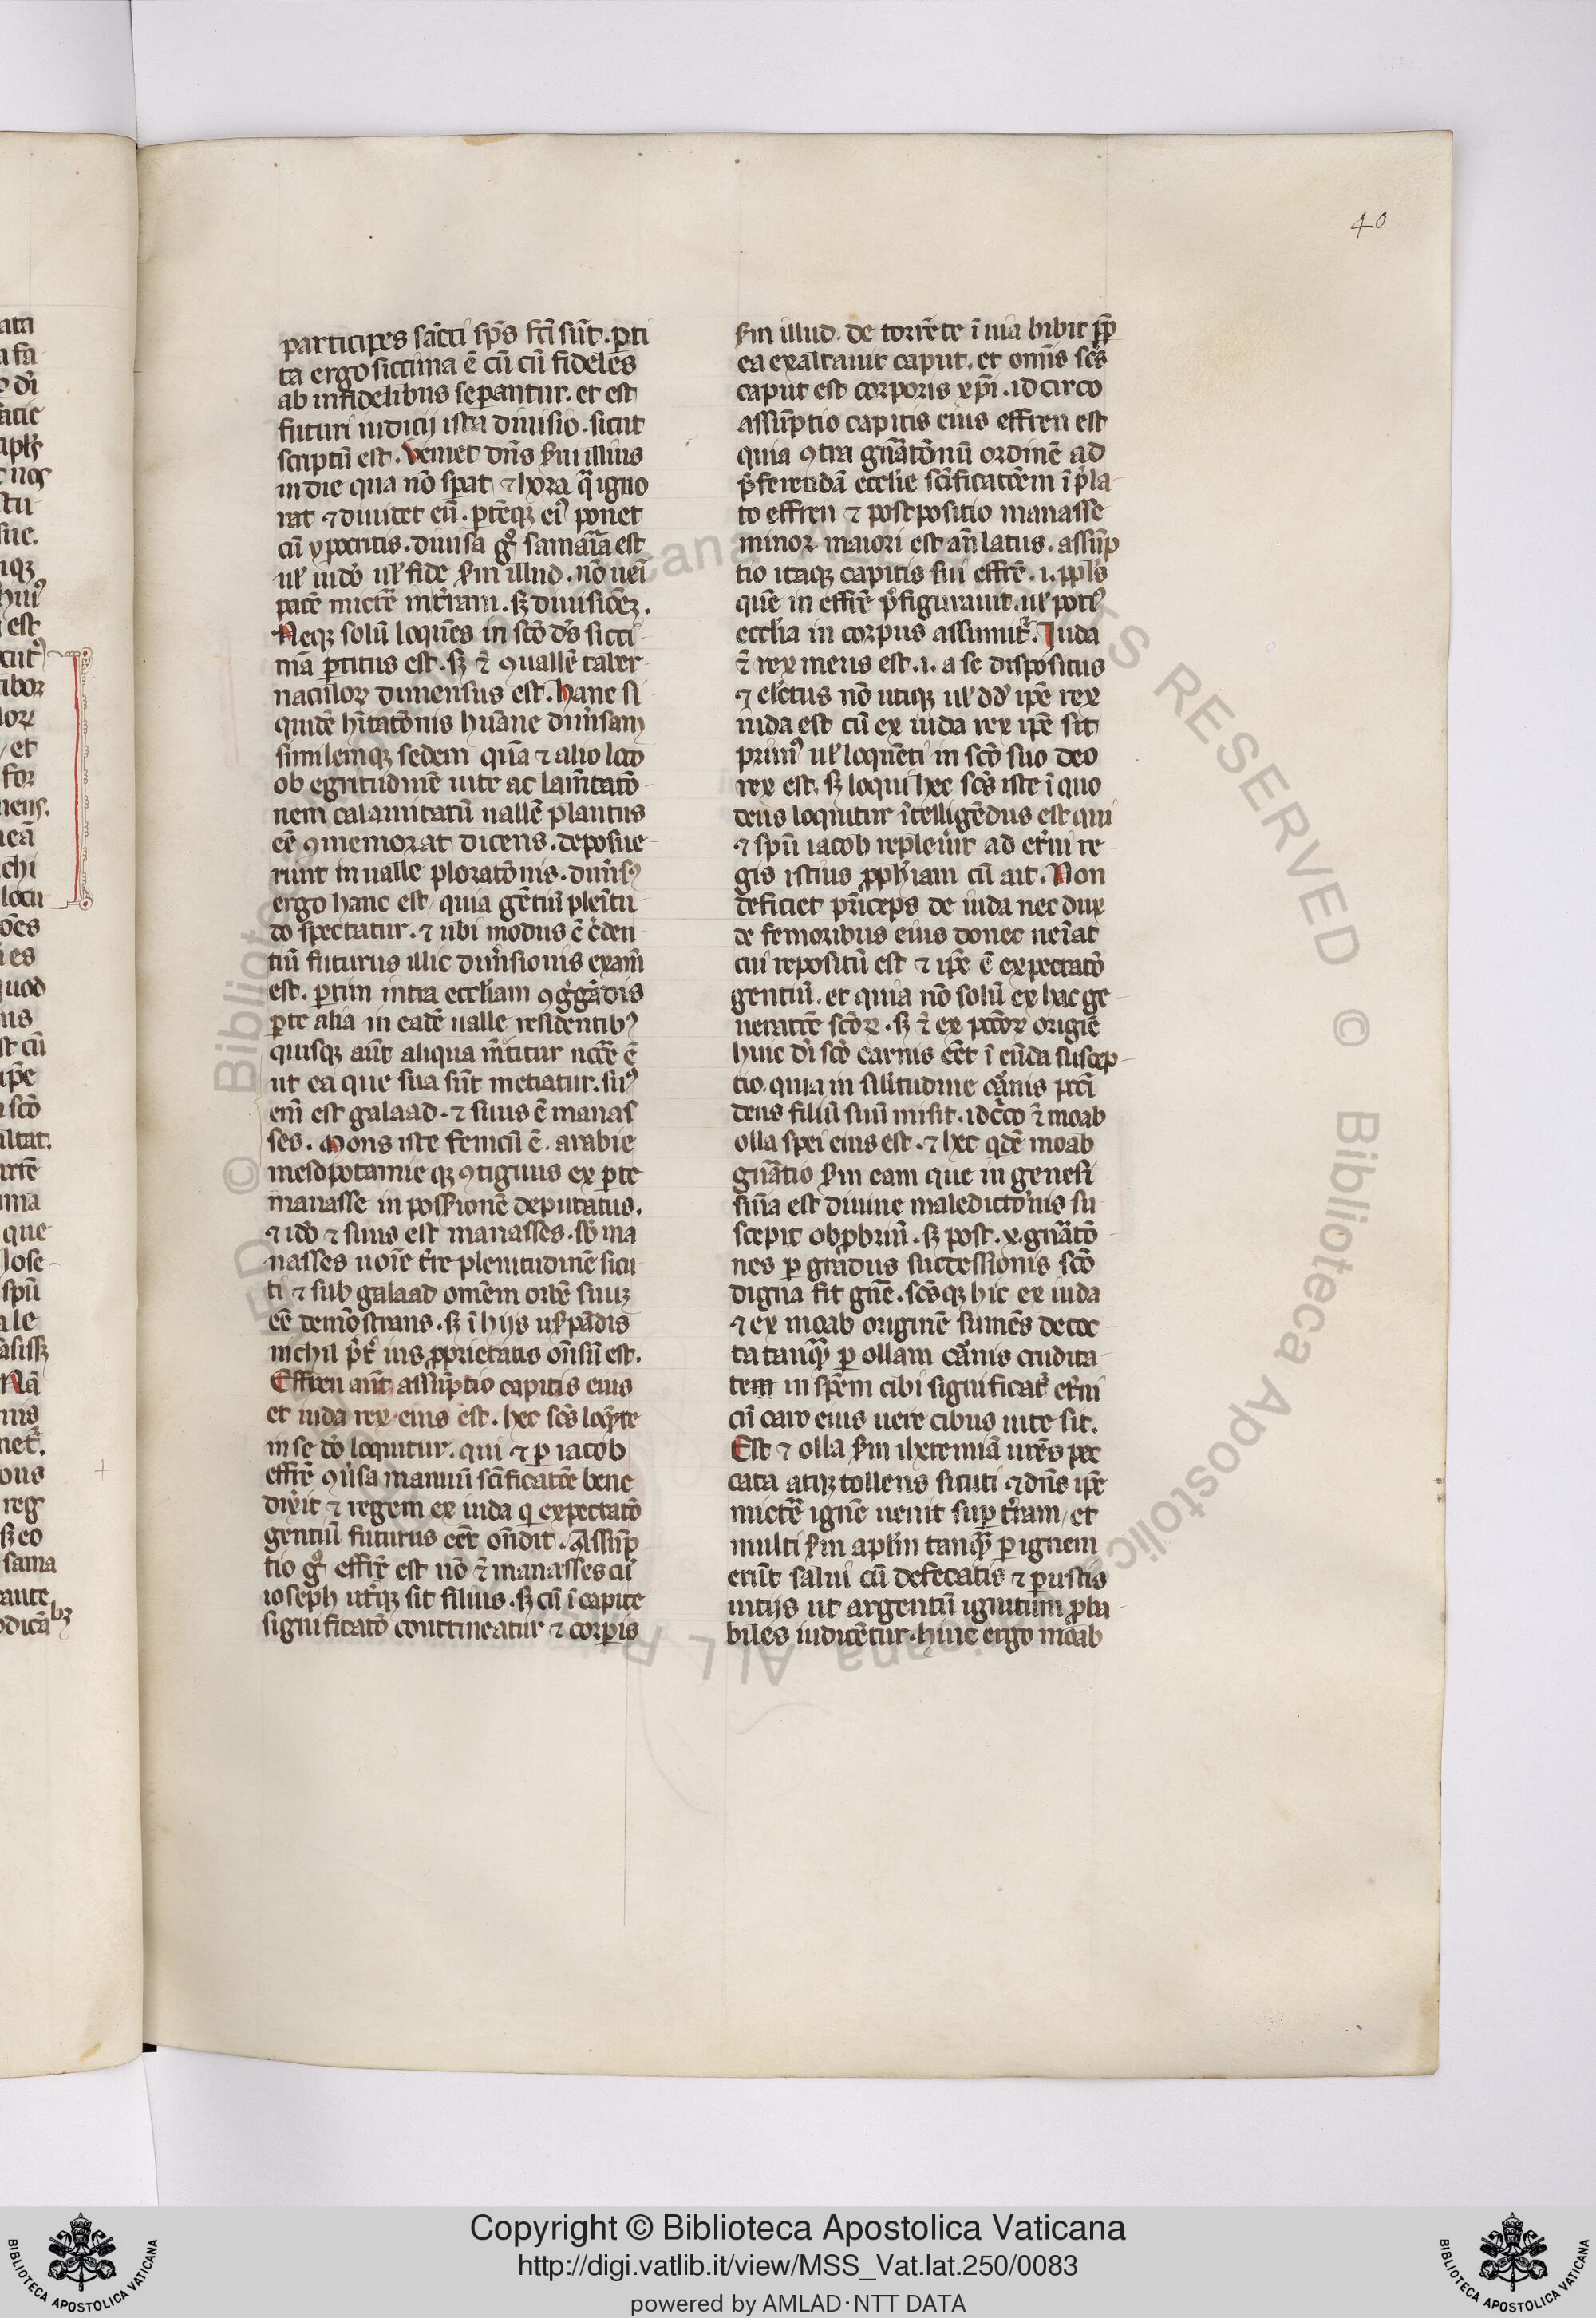 40
participes sc̄ti sp̄s fc̄i sūt. ꝑti
ta ergo siccima ē cū cū fideles
ab infidelibus seꝑantur. et est
futuri iudicij ista diuisio. sicut
scriptū est. Veniet dn̄s illius
in die qua nō sꝑat ⁊ hora q̄ igno
rat ⁊ diuidet eū. ꝑtēqꝫ eiꝰ ponet
cū ypocritis. diuisa gͦ samaria est
ul iudō ul fide scdm illud. nō ueī
pacē mictē in tr̄ram. sꝫ diuisiōeꝫ.
Neqꝫ solū loquēs in scō ds̄ sicci
mā ꝑtitus est. sꝫ ⁊ ꝯuallē taber
naculoꝝ dimensus est. hanc si
quidē hītatōnis huāne dimsam
similemqꝫ sedem quā ⁊ alio loco
ob egritudinē uite ac lam̄tatō
nem calamitatū uallē plantus
eē ꝯmemorat dicens. deposue
runt in ualle ploratōnis. dimsꝰ
ergo hanc est, quia gētiū plētu
do spectatur. ⁊ ubi modus ē c̄den
tiū futurus illic dimsionis exam̄
est. ꝑtim intra eccliam ꝯḡgādis
ꝑte alia in eadē ualle residentibꝰ
quisqꝫ aūt aliqua m̄titur neccē ē
ut ea que sua sūt metiatur. suꝰ
eni est galaad. ⁊ suus ē manas
ses. Mons iste fenicū ē. arabie
mesopotamie qꝫ ꝯtiguus ex ꝑte
manasse in possionē deputatus.
⁊ idō ⁊ suus est manasses. sb̄ ma
nasses noīe tr̄re plenitudinē sicu
ti ⁊ sub galaad omēm orbē suuꝫ
eē demōstrans. sꝫ ī hijs usꝑādis
nichil p̄t ius ꝓprietatis on̄sū est.
Effren aūt assūptio capitis eius
et iuda rex eius est. hec scs̄ loqēte
in se dō loquitur. qui ⁊ ꝑ iacob
effrē ꝯūsa manuū scīficatōe bene
dixit ⁊ regem ex iuda q expectatō
gentiū futurus eēt on̄dit. Assūp
tio gͦ effrē est nō ⁊ manasses cū
ioseph utqꝫ sit filius. sꝫ cū ī capite
significatō contineatur ⁊ corꝑis
scdm illud. de torrēte ī uia bibit ꝓp
ea exaltauit caput. et omīs scs̄
caput est corporis xp̄i. idcirco
assūptio capitis eius effren est
quia ꝯtra gn̄atōnū ordinē ad
p̄ferendā ecclie scīficatōem ī p̄la
to effren ⁊ postpositio manasse
minor maiori est an̄latus. assūp
tio itaqꝫ capitis sui effrē. i. ppls̄
quē in effrē p̄figurauit. ul potiꝰ
ecclia in corpus assumit᷑. Iuda
⁊ rex meus est. i. a se dispositus
⁊ elēctus nō utiqꝫ ul dd̄ ipē rex
iuda est cū ex iuda rex ipē sit
primꝰ ul loquēti in scō suo deo
rex est. sꝫ loqui hec scs̄ iste ī quo
deus loquitur ītelligēdus est qui
⁊ spū iacob repleuit ad et̄ni re
gis istius ꝓphiam cū ait. Non
deficiet p̄nceps de iuda nec dux
de femoribus eius donec ueīat
cui repositū est ⁊ ipē ē expectatō
gentiū. et quia nō solū ex hac ge
neratōe scōꝝ. sꝫ ⁊ ex pctōꝝ origīe
huic di scō carnis eēt ī eūda suscep
tio. quia in silitudine cānis pcti
deus filiū suū misit. idcco ⁊ moab
olla spei eius est. ⁊ hec qdē moab
gnātio scdm eam que in genesi
sūa est diuine maledictōnis su
scepit obꝓbriū. sꝫ post. x. gnātō
nes ꝑ gradus successionis scō
digna fit gn̄e. scs̄qꝫ hic ex iuda
⁊ ex moab originē sumēs decoc
ta tanqꝫ ꝑ ollam cānis crudita
tem in spem cibi significat᷑ et̄ni
cū caro eius uere cibus uite sit.
Est ⁊ olla scdm iheremiā urēs pec
cata atqꝫ tollens sicuti ⁊ dn̄s ipē
mictē ignē uenit suꝑ tr̄ram, et
multi scdm aplm tanqꝫ ꝑ ignem
erūt salui cū defecatis ⁊ ꝑustis
uitijs ut argentū ignitum ꝓba
biles iudicētur. huic ergo moab
Copyright © Biblioteca Apostolica Vaticana
http://digi.vatlib.it/view/MSS_Vat.lat.250/0083
powered by AMLAD·NTT DATA
BIBLIOTECA APOSTOLICA VATICANA
BIBLIOTECA APOSTOLICA VATICANA